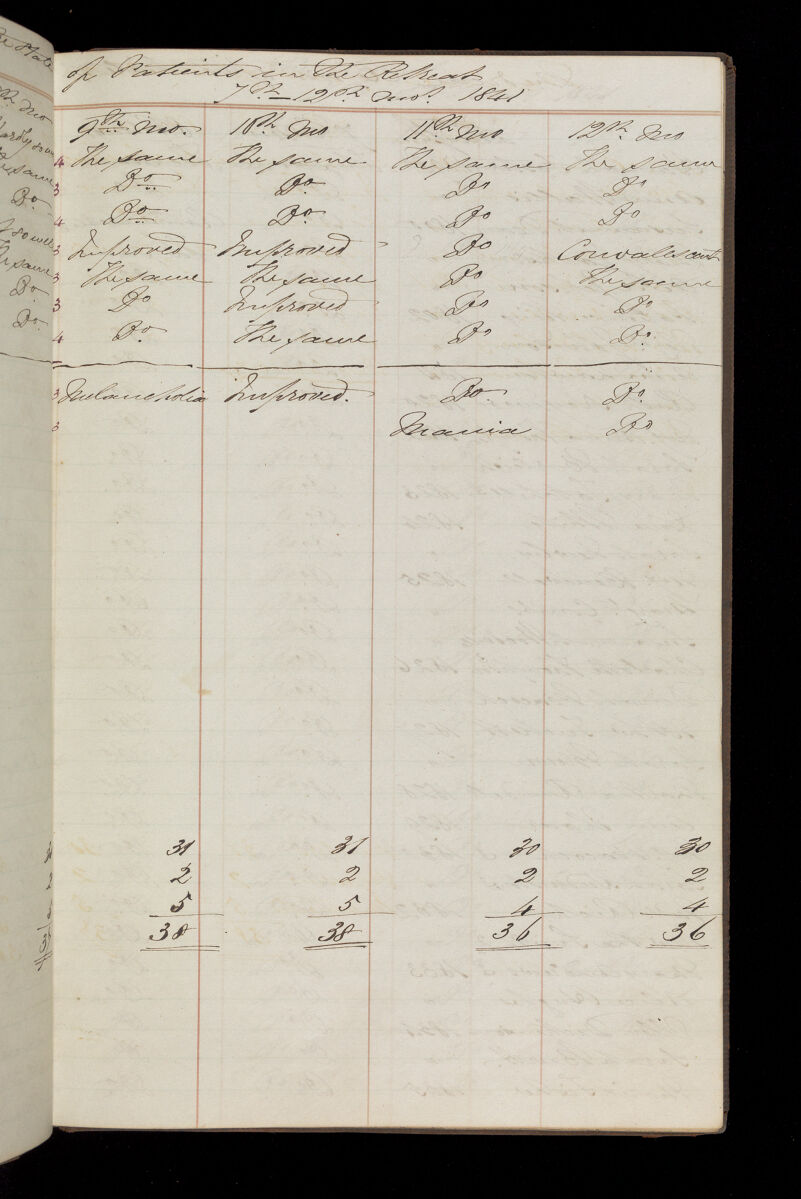 of Patients in the Retreat
7th – 12th mo. 1841
9th mo. 10th mo 11th mo 12th mo
4 The same The same The same The same
3 Do Do Do Do
4 Do Do Do Do
3 Improved Improved Do Convalescent
3 The same The same Do The same
3 Do Improved Do Do
4 Do. The same Do Do.
3 Melancholia Improved. Do. Do.
3 Mania Do
31 31 30 30
2 2 2 2
5 5 4 4
38 38 36 36